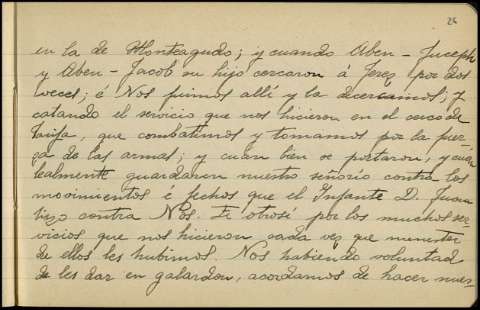 26
en la de Monteagudo; y cuando Aben-Juceph
y Aben-Jacob su hijo cercaron á Jerez por dos
veces; é Nós fuimos allí y la decercamos; y
catando el servicio que nos hicieron en el cerco de
Tarifa, que combatimos y tomamos por la fuer-
za de las armas; y cuan bien se portaron, y cuan
lealmente guardaron nuestro señorío contra los
movimientos é fechos que el Infante D. Juan
hizo contra Nós. Et otrosí por los muchos ser-
vicios que nos hicieron cada vez que menester
de ellos les hubimos. Nos habiendo voluntad
de les dar en galardon, acordamos de hacer nues-